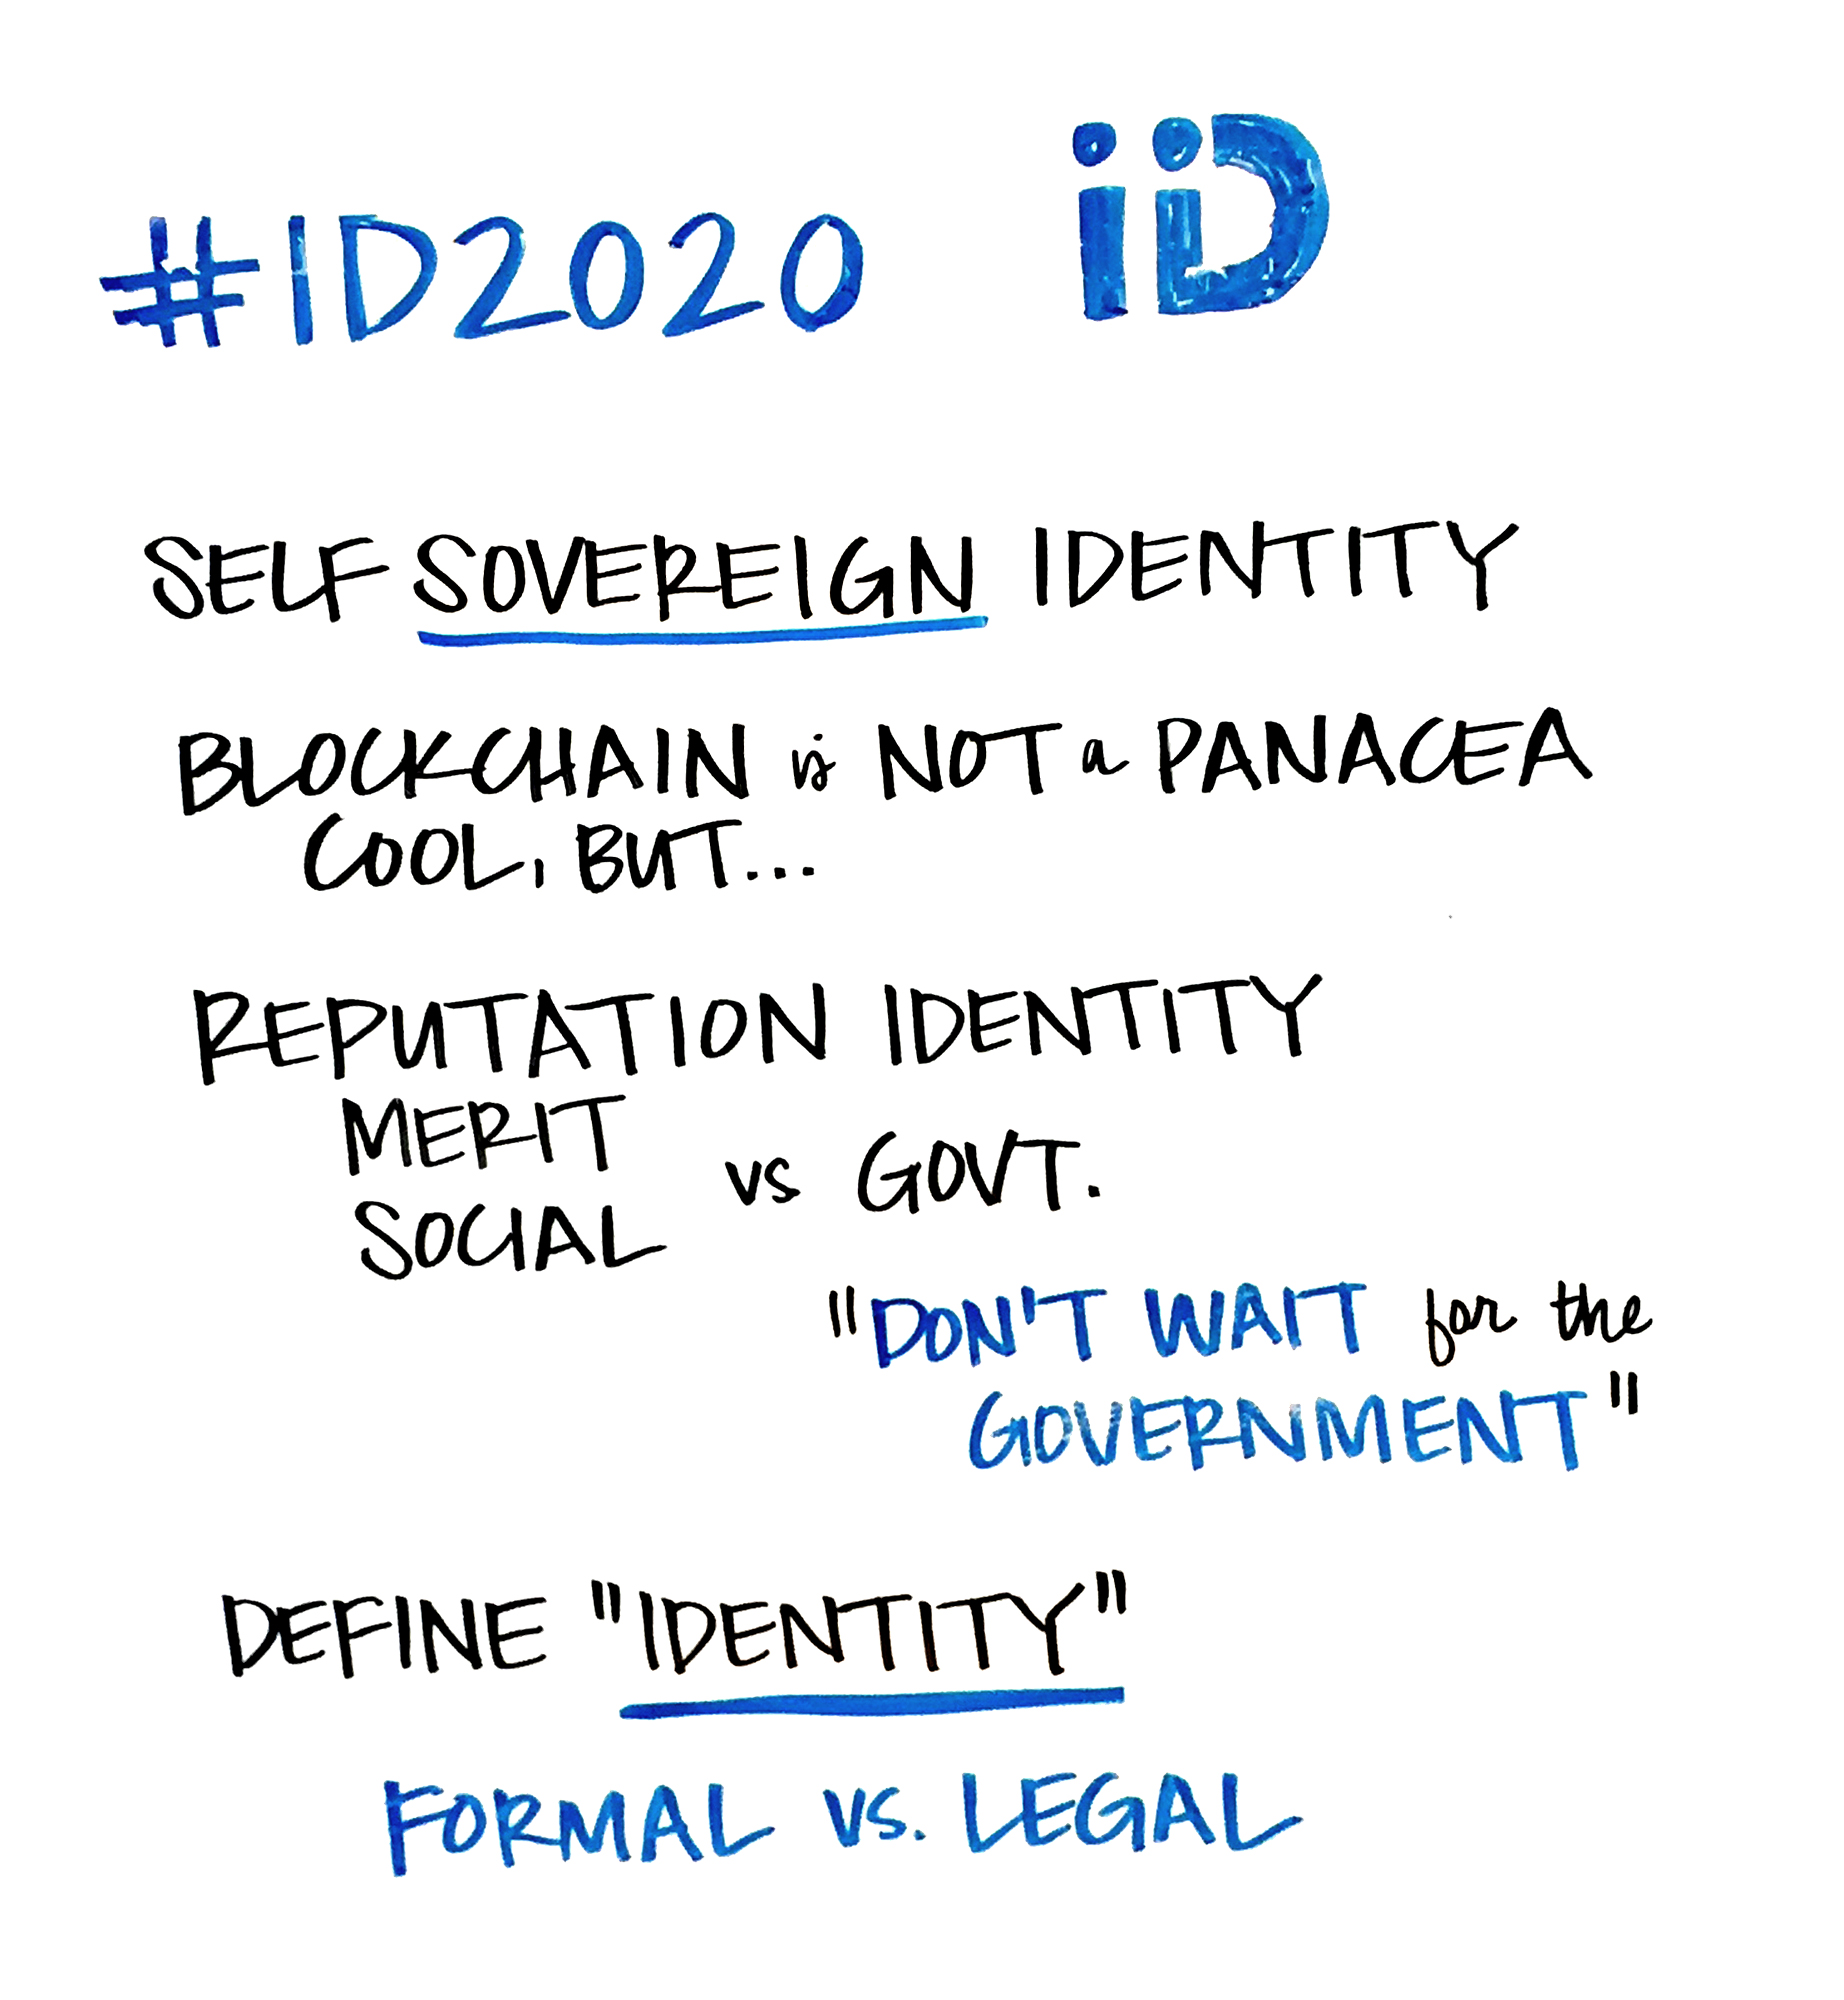 #ID2020 iiD
SELF SOVEREIGN IDENTITY
BLOCKCHAIN is NOT a PANACEA
COOL, BUT...
REPUTATION IDENTITY
MERIT
vs GOVT.
SOCIAL
"DON'T WAIT for the
GOVERNMENT"
DEFINE "IDENTITY"
FORMAL vs. LEGAL